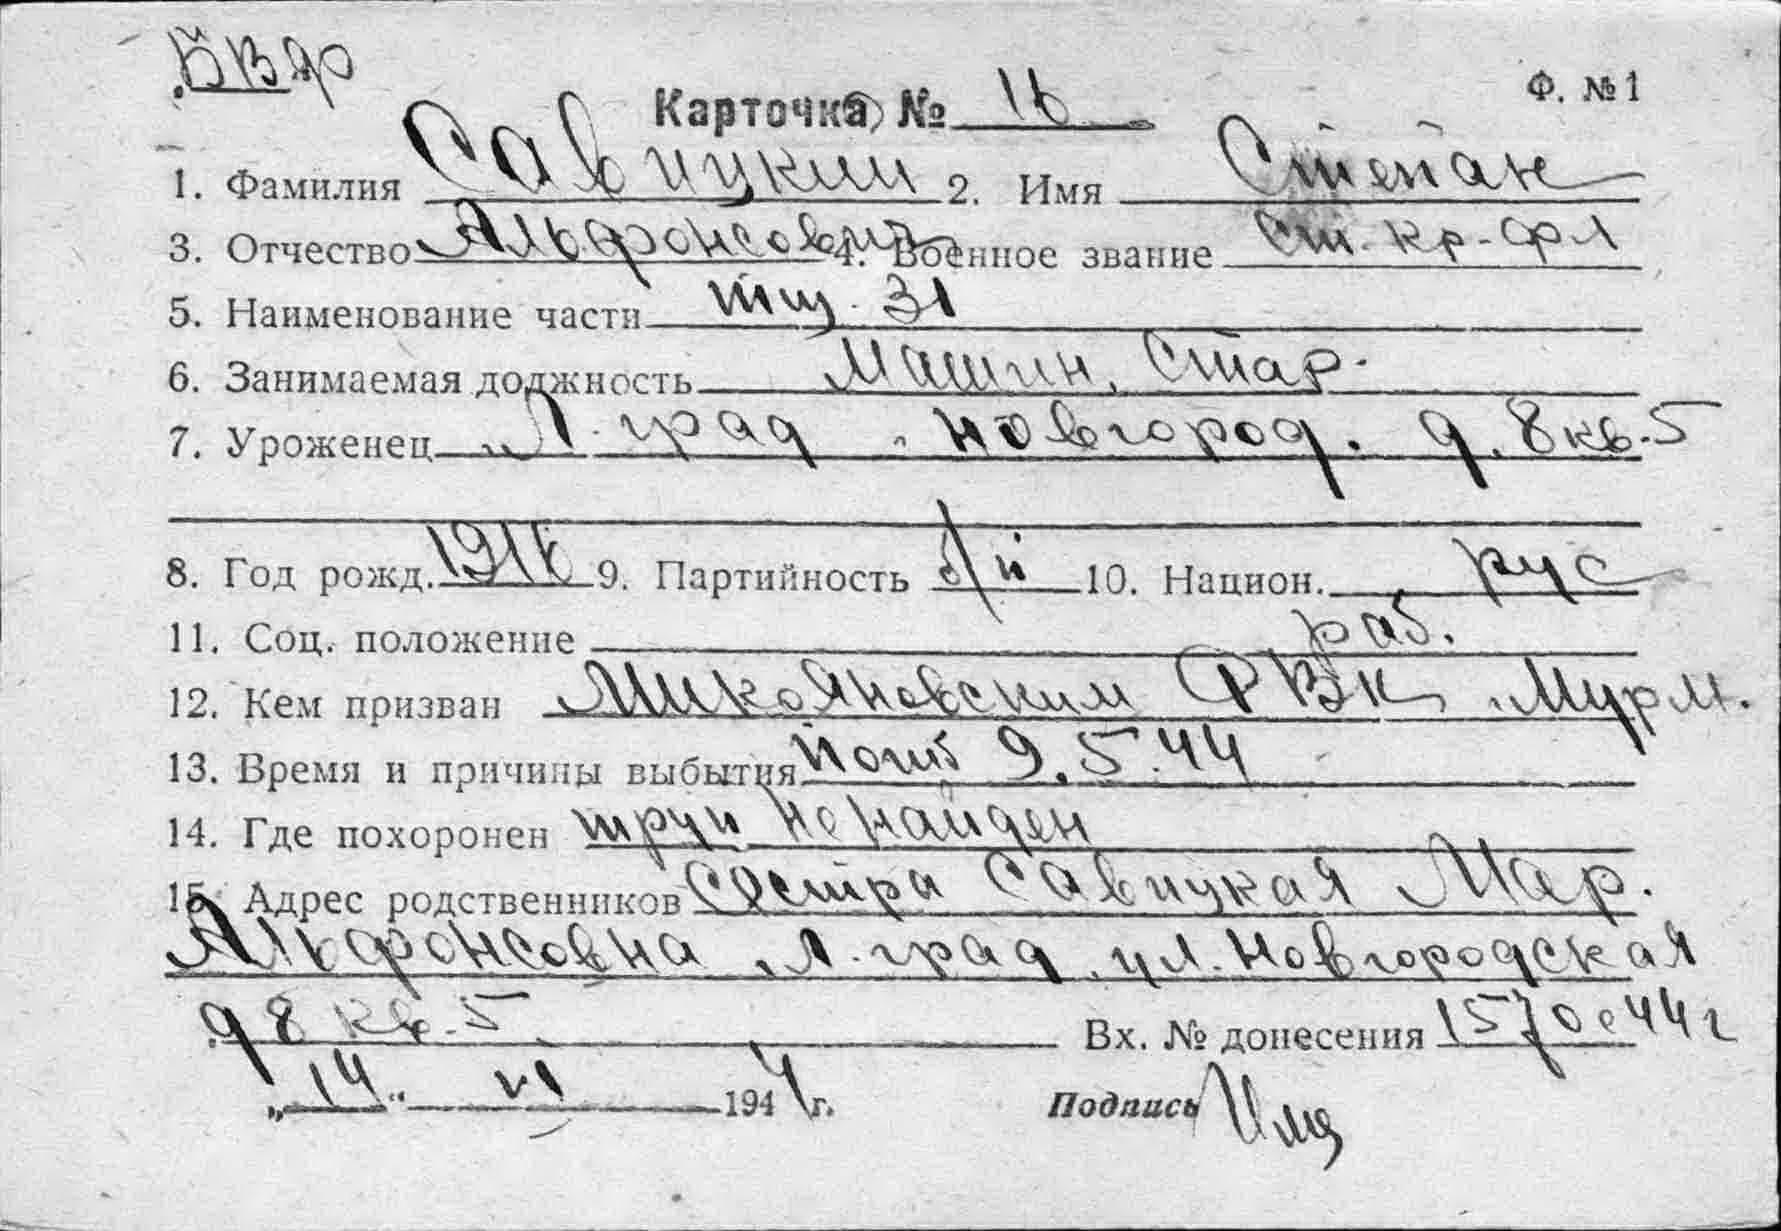 БВФ
Ф. №1
Карточка № 16
1. Фамилия Савицкий 2. Имя Степан
3. Отчество Альфонсович 4. Военное звание Ст. кр-фл
5. Наименование части тщ. 31
6. Занимаемая должность Машин. Стар.
7. Уроженец Л. град. Новгород. д. 8 кв. 5
8. Год рожд. 9. Партийность б/п 10. Национ. рус
11. Соц. положение раб.
12. Кем призван Микояновским РВК, Мурм.
13. Время и причины выбытия Погиб 9.5.44
14. Где похоронен труп не найден
15. Адрес родственников Сестра Савицкая Мар.
Альфонсовна Л. град. ул. Новгородская
д 8 кв. 5 Вх. № донесения 1570с 44г
„14“ VI 1944г. Подпись